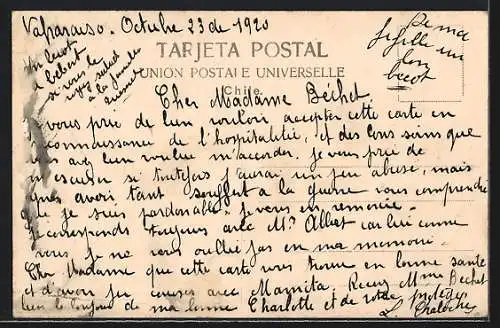 Valparaiso. Octubre 23 de 1920
TARJETA POSTAL
UNION POSTALE UNIVERSELLE
Chile
De ma
fille un
bon
becot
Un becot
a
si vous le
voyez salut
a la famille
Cher Madame Béchet
vous prie de bien vouloir accepter cette carte en
reconnaissance de l'hospitalité, et des bons soins que
vous avez bien voulue m'accorder. je vous prie de
m'escuser si toutefois j'aurai un peu abuse, mais
après avoir tant souffert a la guerre vous comprendre
que je suis pardonable. je vous en remercie.
Je corresponds toujours avec Mr Albert car lui comme
vous, je ne vous oublie pas en ma memoire.
Cher Madame que cette carte vous trouve en bonne sante
et d'avoir pu causer avec Mamita. Recevez Mme Bechet
bien le bonjour de ma bonne Charlotte et de votre
protégé